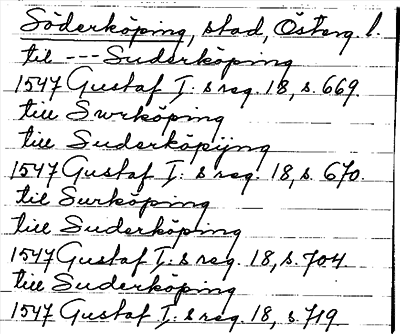 Söderköping, stad, Österg. l.
til --- Suderköping
1547 Gustaf I:s reg. 18, s. 669.
till Swrköping
till Suderköpijng
1547 Gustaf I:s reg. 18, s. 670.
til Surköping
till Suderköping
1547 Gustaf I:s reg. 18, s. 704
till Suderköping
1547 Gustaf I:s reg. 18, s. 719